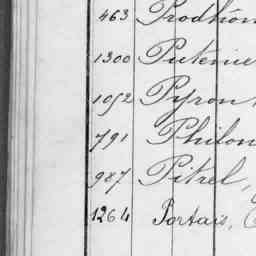 463 Prodhom
1300 Putenie
1052 Pyron
791 Philon
987 Pitrel,
1264 Portais,